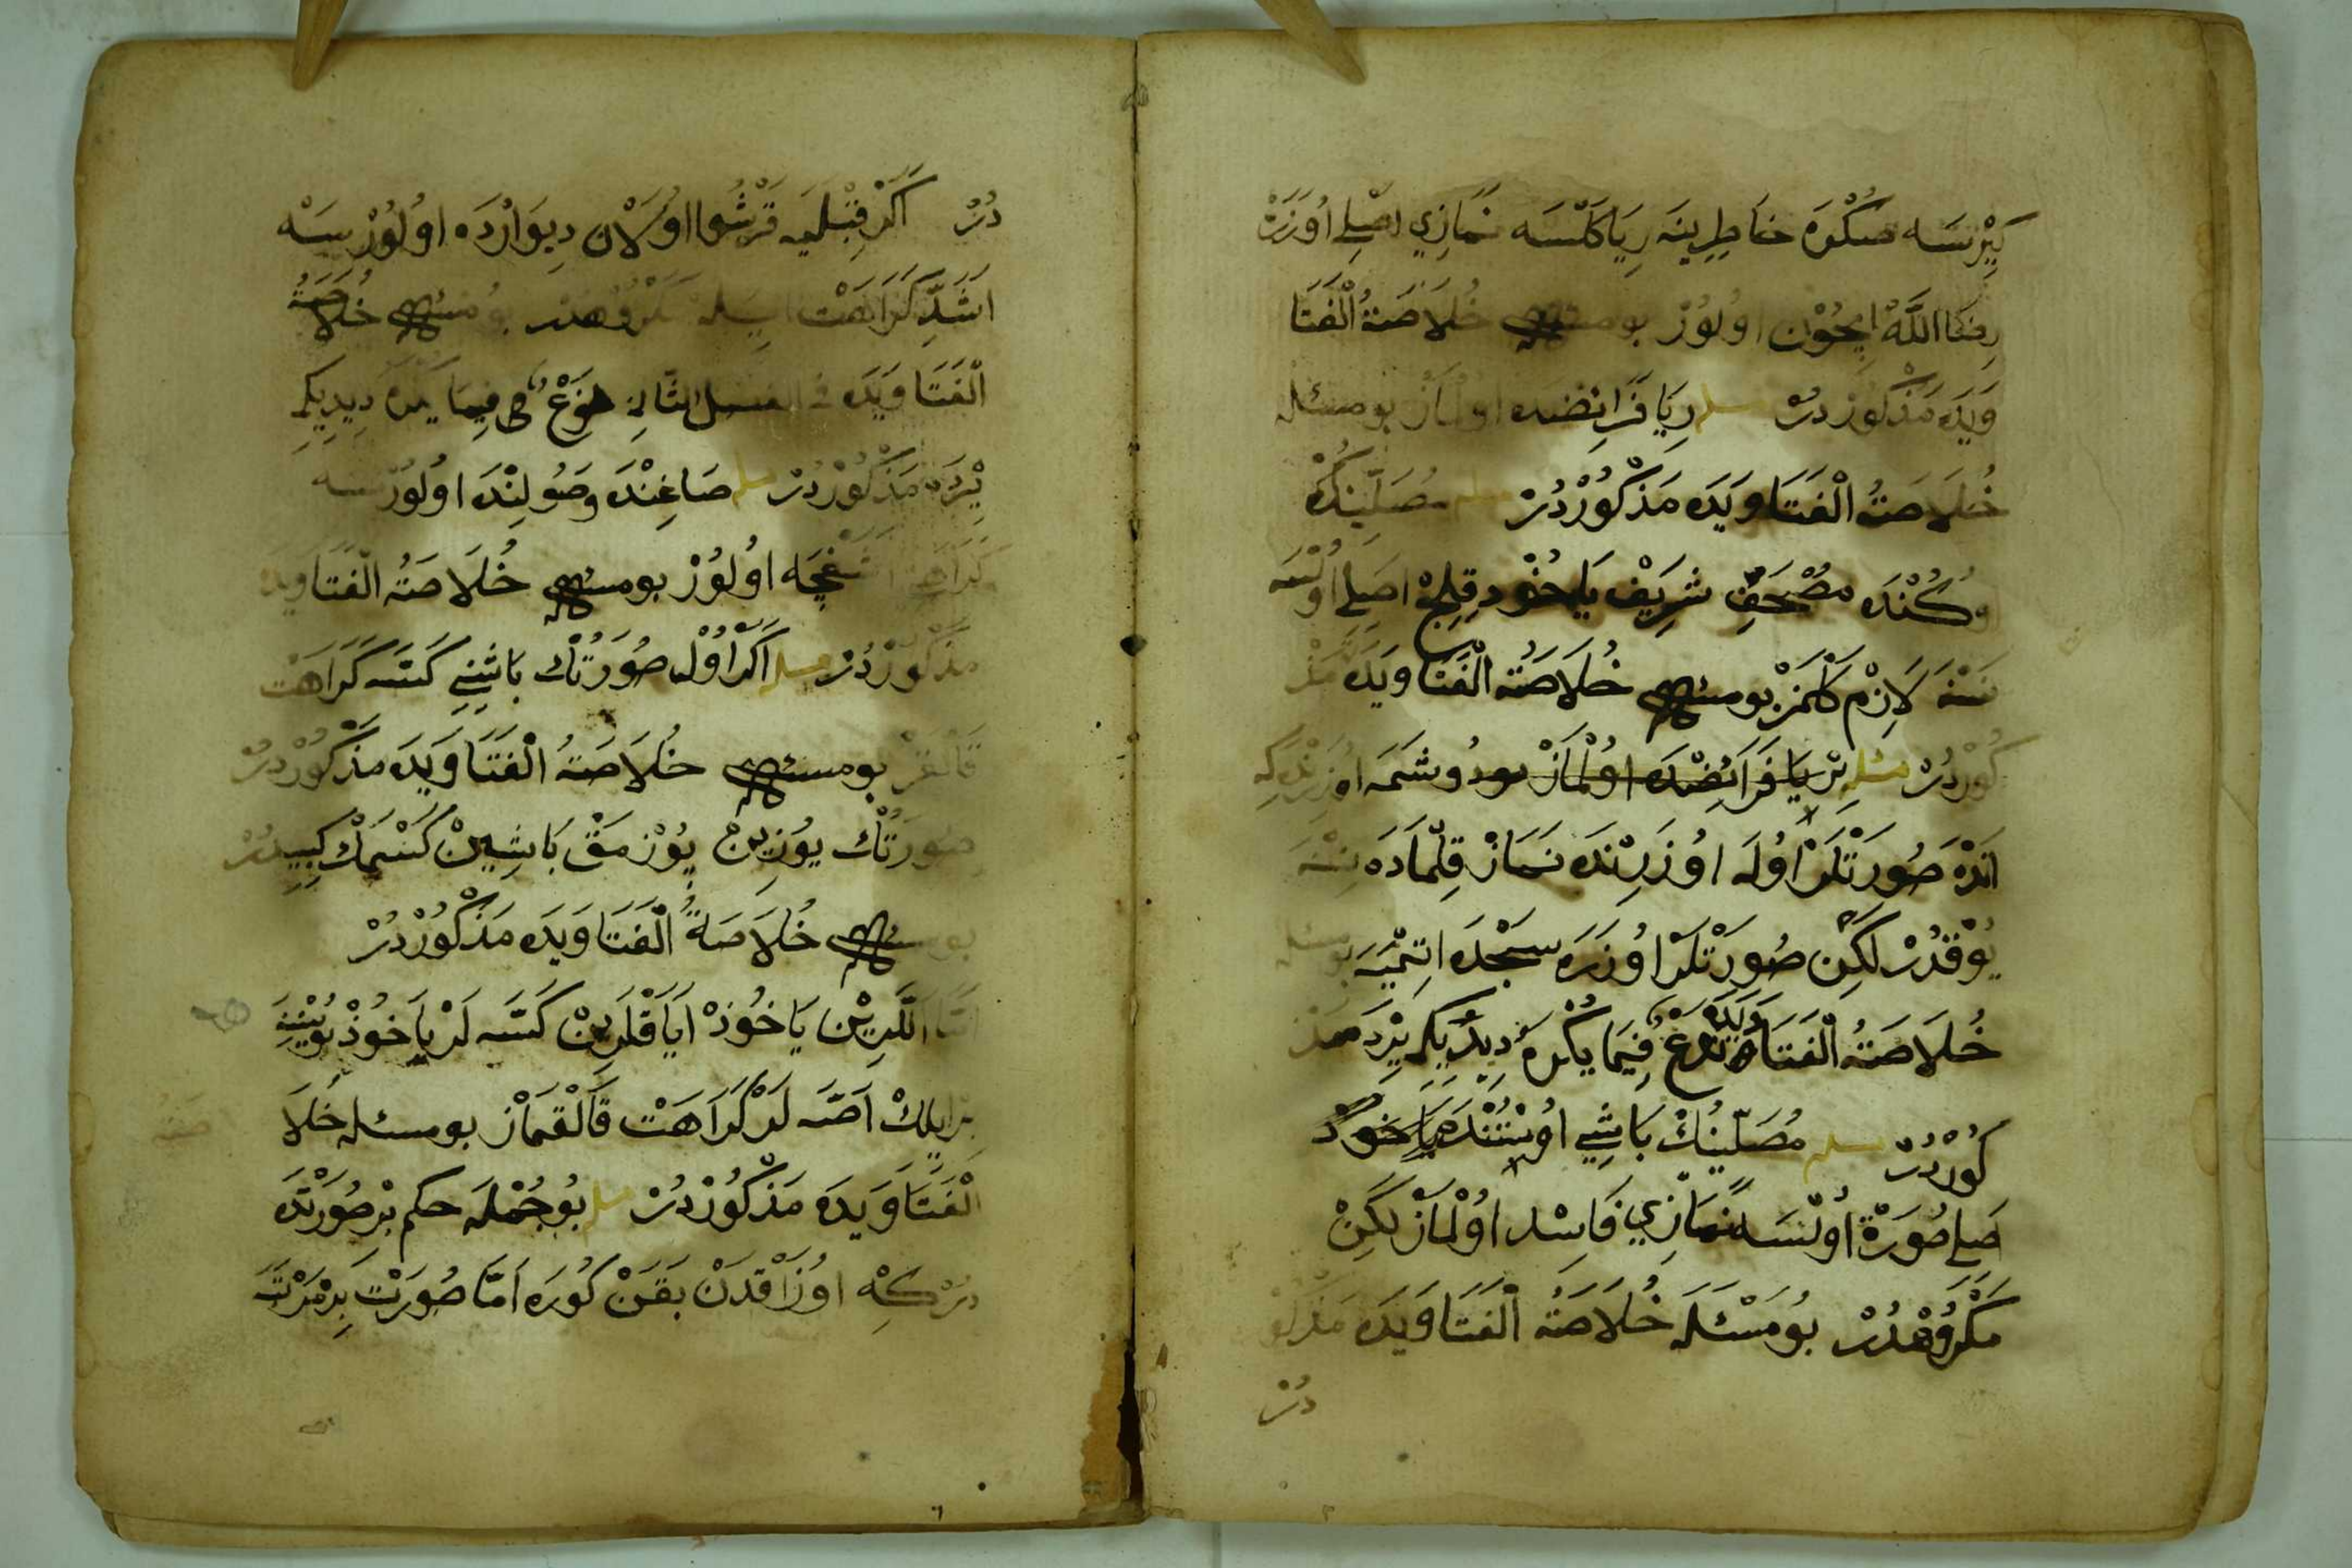 كِيْرسَه صُكْرَه خَاطِرِينَه رِيَا كَلْسَه نَمَازِي اصْلِ اُوزَرَتْ
رِضَا اللّٰه اِيچُوْن اُولُوْر بو مسئله خُلَاصَةُ الْفَتَا
وَيَدَه مَذْكُوْرْدُرْ مسله رِيَا فَرَائِضْدَه اولْمَازْ بو مسئله
خُلَاصَتُ الْفَتَاوَيَدَه مَذْكُوْرْدُرْ مسله مُصَلِّينُكْ
اوكُنْدَه مُصْحَفِ شَرِيَفْ يَا خُوْد قِلِجْ اصَلِ اُولْسَه
نَسْنَه لَازِمْ كَلْمَزْ بو مسئله خُلَاصَتُ الْفَتَاوَيَدَه مَذْ
كُوْرْدُرْ مسله بْر يَا فَرَائِضْدَه اوُلْمَازْ بو دُوشَمَه اُوزَرِنْدَه كِه
اَنْدَه صُورَتْلَرْ اُولَه اوُزَرِنْدَه نَمَازْ قِلْمَادَه نَسْنَه
يُوْقْدُرْ لكِنْ صُورَتْلَرْ اوُزَرَه سَجْدَه اتِمْيَه بو مسئله
خُلَاصَتُ الْفَتَاوَيَدَه نَوْعٌ فِيمَا يُكْرَهُ دِيدِيكِ يَرْدَه مَذْ
كُورْدُرْ مسله مُصَلِّينُكْ بَاشِي اُوسْتُنْدَه يَا خَوذْ
صَلِ صُورَةْ اُولْسَه نَمَازِي فَاسِد اوُلْمَازْ لَكِنْ
مَكْرُوْهْدُرْ بُو مَسْئَلَه خُلَاصَةُ الْفَتَاوَيَدَه مَذْكُو
دُرْ
دُرْ اَكَرْ قِبْلَيَه قَرْشُو اوُلَانْ دِيوَارْدَه اوُلُوْرْسَه
اشَدِّ كَرَاهَتْ ايله مَكْرُوْهْدُر بو مسئله خُلَاصَةُ
الْفَتَاوَيَدَه فى الفصل الثَّانِى نَوْعٌ فِى فِيمَا يُكْرَهُ دِيدِيكِ
يَرْدَه مَذْكُوْرْدُرْ مسله صَاغِنْدَه وَصُولِنْدَه اوُلُورْسَه
كَرَاهَت اَشَغِجَه اُولُوْرْ بو مسئله خُلَاصَتُ الْفَتَاوَيَدَه
مَذْكُوْرْدُرْ مسله اَكَرْ اوُلْ صُورَتُكْ بَاشِنِي كَسَه كَرَاهَتْ
قَالْمَزْ بو مسئله خُلَاصَتُ الْفَتَاوَيَدَه مَذْكُوْرْدُرْ
صُورَتُكْ يوُزِينْ يُوْزمَقْ بَاشِينْ كَسْمَكْ كِبِيدُرْ
بو مسئله خُلَاصَةُ الْفَتَاوَيَدَه مَذْكُوْرْدُرْ
اَمَّا اَلَّرِيْن يَا خُوذْ اَيَاقْلَرِينْ كَسَه لَرْ يَا خُوذْ بُوْيْنِنَه
بَرْ ايلِكْ اَصَه لَرْ كَرَاهَتْ قَالْقمَازْ بو مسئله خُلَا
الْفَتَاوَيدَه مَذْكُوْرْدُرْ مسله بُو جُمْلَه حكم بْر صُورَتْدَه
دُرْ كِه اوُزَاقْدَنْ بَقَنْ كُورَه اَمَّا صُورَتْ بِرْ مَرْتَبَه